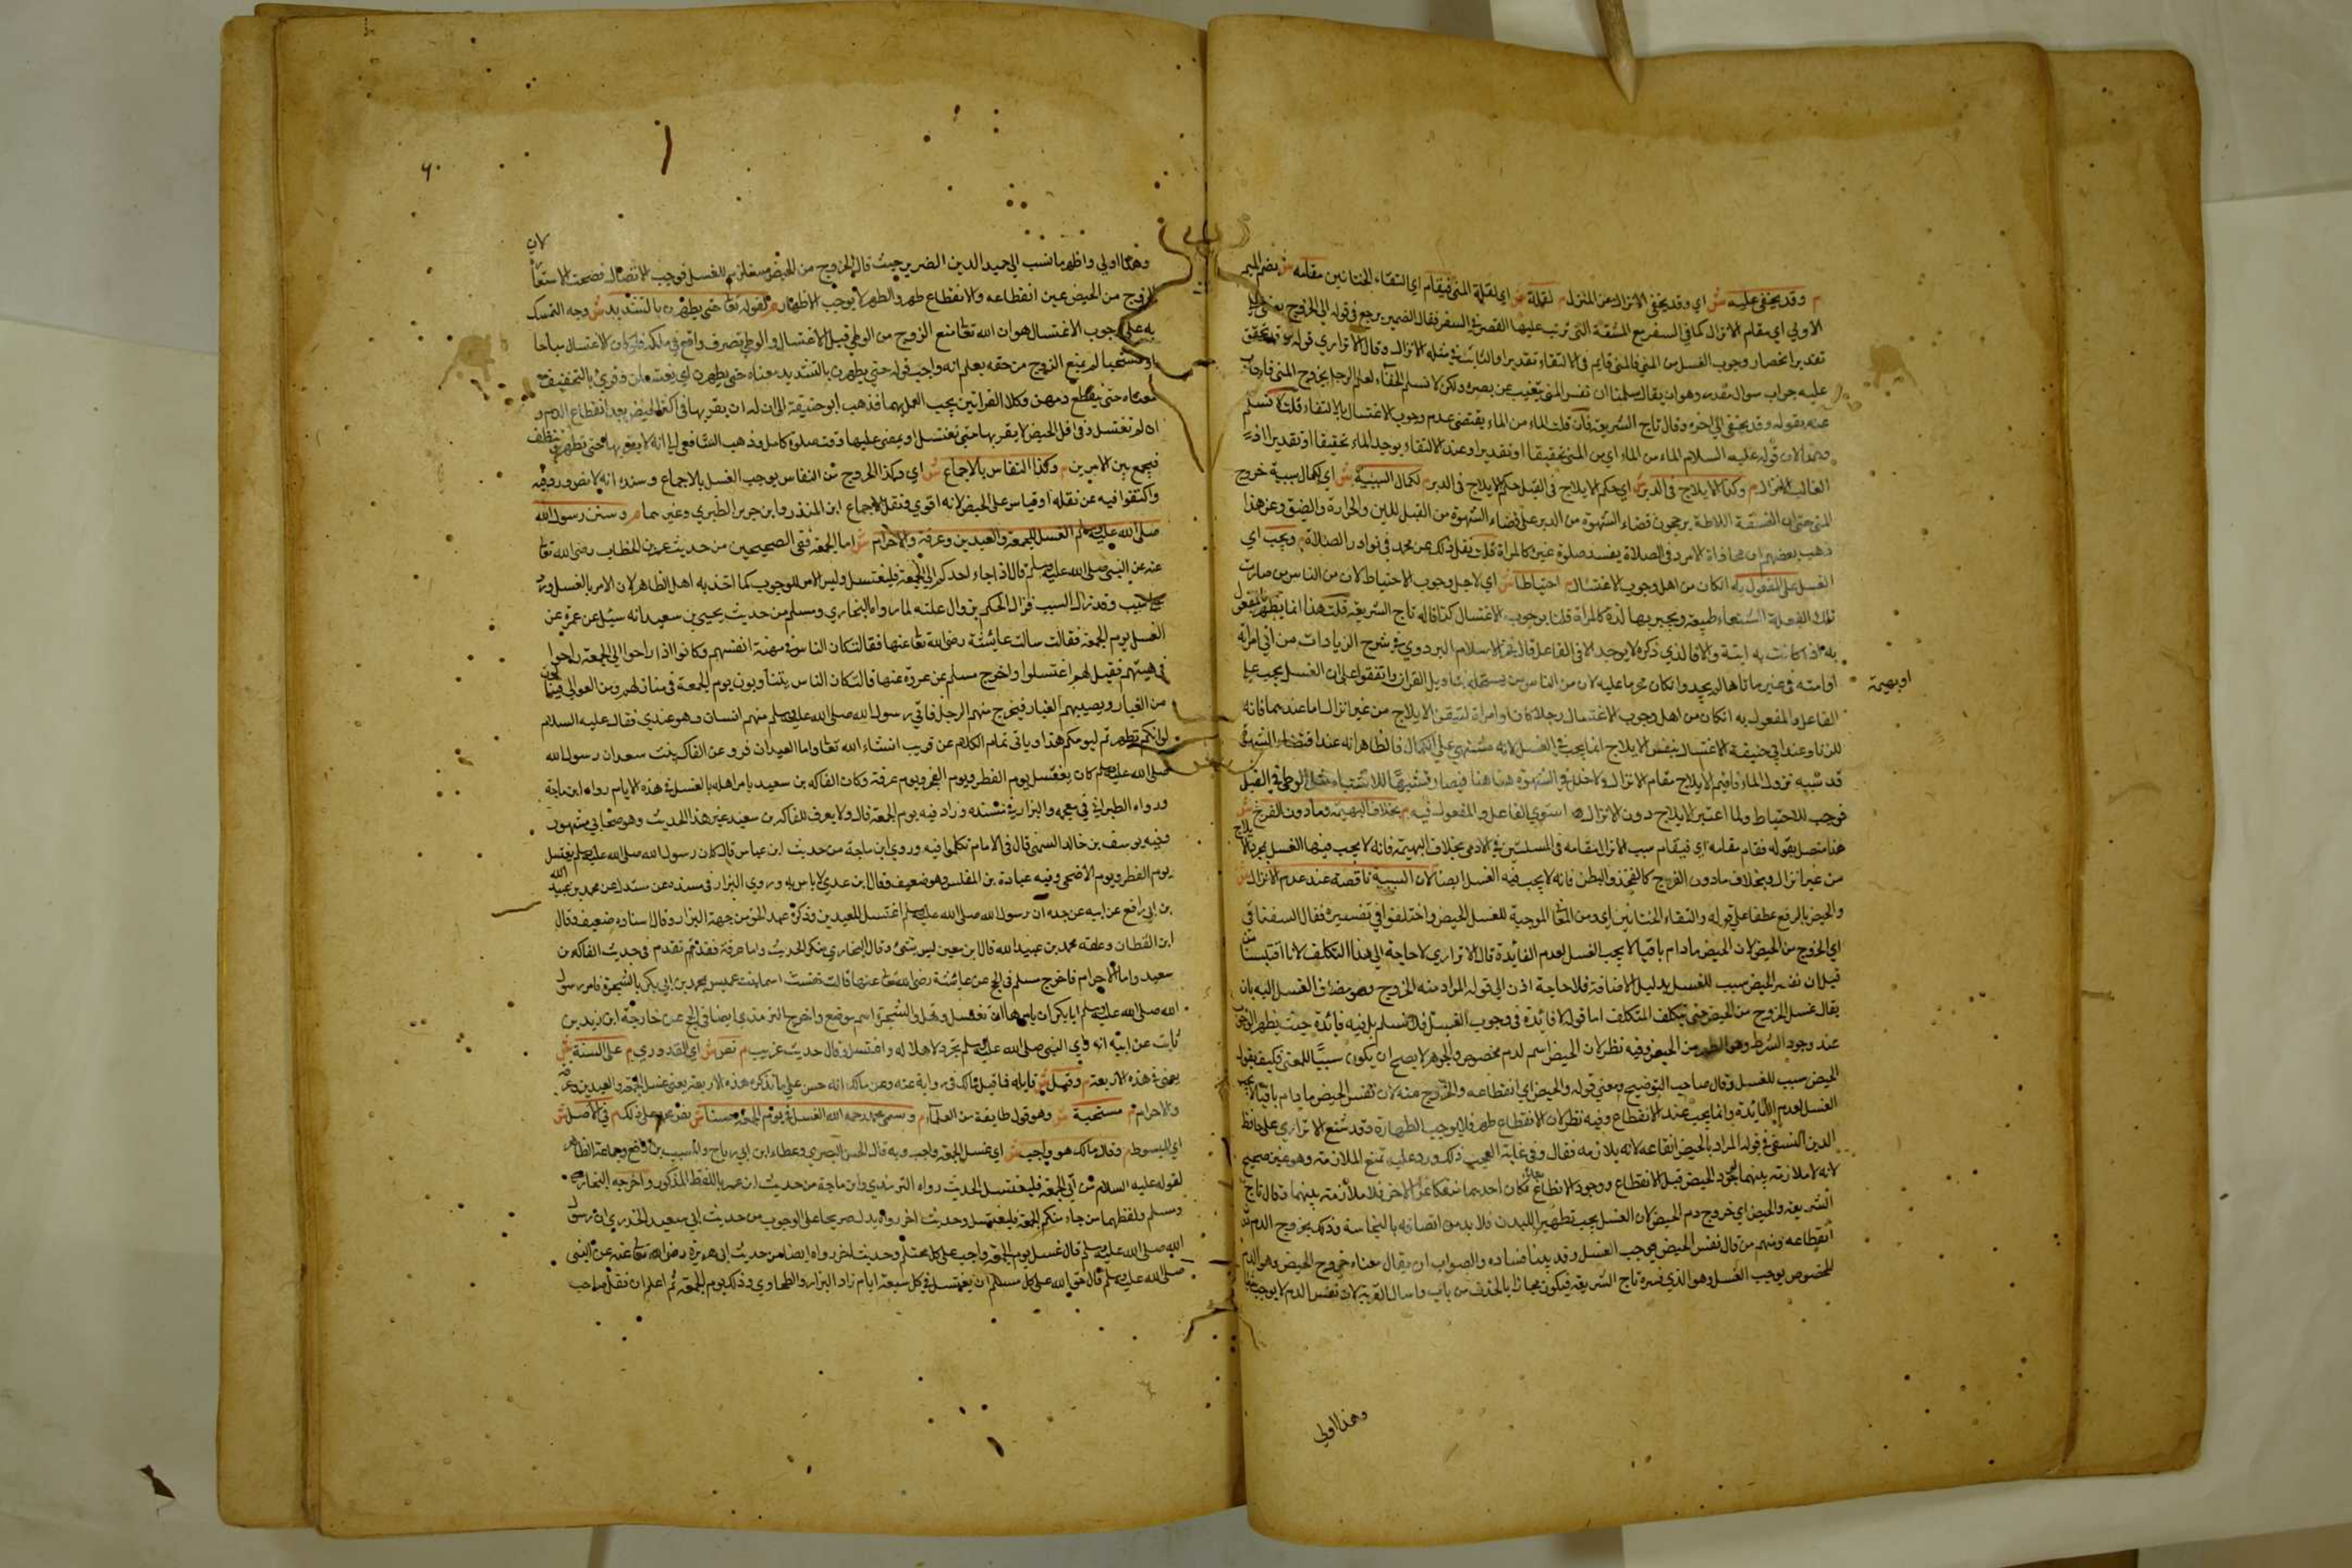 م وقد يخفى عليه ش اي وقد يخفى الانزال عن المنزل م لقلة ش اي لقلة المني فيقام اي التقاء الختانين مقامه ش بضم الميم
الاولى اي مقام الانزال كما في السفر مع المشقة التي ترتب عليها القصر في السفر فقال الضمير يرجع في قوله الى الخروج يعني
تقديرا انحصار وجوب الغسل من المني فالمني قايم في الالتقاء تقديرا والثابت في مثله الانزال وقال الاترازي قوله وقد يخفى
عليه جواب سوال مقدر وهو ان يقال سلمنا ان نفس المني يتغيب عن بصره ولكن لا نسلم الخفاء لعلم الرجل بخروج المني فاجاب
عنه بقوله وقد يخفى الى اخره وقال تاج الشريعة فان قلت الماء من الماء يقتضي عدم وجوب الاغتسال بالالتقاء قلت لا نسلم
وهذا لان قوله عليه السلام الماء من الماء اي من المني تحقيقا او تقديرا وعند الالتقاء يوجد الماء تحقيقا او تقديرا اذ
الغالب الانزال م وكذا الايلاج في الدبر ش اي حكم الايلاج في القبل حكم الايلاج في الدبر م لكمال السببية ش اي لكمال سببية خروج
المني حتى ان الفسقة اللاطة يرجحون قضاء الشهوة من الدبر على قضاء الشهوة من القبل للين والحرارة والضيق وعن هذا
ذهب بعضهم ان محاذاة الامرد في الصلاة يفسد صلوة غيره كالمراة قلت نقل ذلك عن محمد في نوادر الصلاة م ويجب اي
الغسل على المفعول به ان كان من اهل وجوب الاغتسال م احتياطا ش اي لاجل وجوب الاحتياط لان من الناس من صارت
تلك الفعلة الشنعاء طبيعة ويجبر بها لذة كالمراة قلنا بوجوب الاغتسال كذا قاله تاج الشريعة قلت هذا انما يظهر في المفعول
به اذا كانت به ابنة والا فالذي ذكره لا يوجد الا في الفاعل قال فخر الاسلام البزدوي في شرح الزيادات من اتى امراته
او امته في غير ماتاها لم يحد وان كان محرما عليه لان من الناس من يستحله بتاويل القران واتفقوا على ان الغسل يجب على
او بهيمة
الفاعل والمفعول به ان كان من اهل وجوب الاغتسال رجلا كان او امراة لتيقن الايلاج من غير انزال اما عندهما فانه
للزنا وعند ابي حنيفة الاغتسال بنفس الايلاج انما يجب في الغسل لانه مشتهى على الكمال فالظاهر انه عند اقتضاء الشهوة
قد شبيه نزول الماء فاقيم الايلاج مقام الانزال ولا خلل في الشهوة هنا
فوجب للاحتياط ولما اعتبر الايلاج دون الانزال استوى الفاعل والمفعول فيه م بخلاف البهيمة وما دون الفرج ش
هذا متصل بقوله فقام مقامه اي فيقام سبب الانزال مقامه في المسلتين في الادمي بخلاف البهيمة فانه لا يجب فيها الغسل بمجرد الايلاج
من غير انزال وبخلاف ما دون الفرج كالفخذ والبطن فانه لا يجب فيه الغسل ايضا لان السببية ناقصة عند عدم الانزال ش
والحيض بالرفع عطفا على قوله والتقاء الختانين اي ومن المعاني الموجبة للغسل الحيض واختلفوا في تفسيره فقال السغناقي
اي الخروج من الحيض لان الحيض مادام باقيا لا يجب الغسل لعدم الفائدة قال الاترازي لا حاجة الى هذا التكلف لانا اقتبسنا
قيل ان نفس الحيض سبب للغسل بدليل الاضافة فلا حاجة اذن الى قوله المراد منه الخروج وهو مضاف الغسل اليه بان
يقال غسل الخروج من الحيض حتى يتكلف المتكلف اما قوله لا فائدة في وجوب الغسل فلا نسلم بل فيه فائدة حيث يظهر الوجوب
عند وجود الشرط وهو الطهر من الحيض وفيه نظر لان الحيض اسم لدم مخصوص والجوهر لا يصح ان يكون سببا للمعنى فكيف يقول
الحيض سبب للغسل وقال صاحب التوضيح ومعنى قوله والحيض اي انقطاعه والخروج عنه لان نفس الحيض مادام باقيا لا يجب
الغسل لعدم الفائدة وانما يجب عند الانقطاع وفيه نظر لان الانقطاع طهر فلا يوجب الطهارة وقد شنع الاترازي على حافظ
الدين النسفي في قوله المراد بالحيض انقطاعه لانه يلازمه فقال وفي غاية العجب ذلك ورد عليه تمنع الملازمة وهو غير صحيح
لانه لا ملازمة بينهما لوجود الحيض قبل الانقطاع ووجود الانقطاع بعده فكان احدهما منفكا عن الاخر فلا ملازمة بينهما وقال تاج
الشريعة والحيض اي خروج دم الحيض لان الغسل يجب تطهيرا للبدن فلا بد من اتصافه بالنجاسة وذلك بخروج الدم
انقطاعه ومنهم من قال نفس الحيض يوجب الغسل وقد بينا فساده والصواب ان يقال معناه خروج الحيض وهو الدم
المخصوص يوجب الغسل وهو الذي فسره تاج الشريعة فيكون مجازا بالحذف من باب واسال القرية لان نفس الدم لا يوجب شيئا
وهذا اولى
٦٠
وهذا اولى واظهر ما نسب الى حميد الدين الضرير حيث قال الخروج من الحيض مستلزم للغسل فوجب الاتصال فصحت الاستعارة
الخروج من الحيض عين انقطاعه والانقطاع طهر والطهر لا يوجب الاطهار م لقوله تعالى حتى يطهرن بالتشديد ش وجه التمسك
به على وجوب الاغتسال هو ان الله تعالى منع الزوج من الوطي قبل الاغتسال والوطي تصرف واقع في ملكه فلو كان الاغتسال مباحا
او مستحبا لم يمنع الزوج من حقه يعلم انه واجب قوله حتى يطهرن بالتشديد معناه حتى يطهرن اي يغتسلن وقرئ بالتخفيف
معناه حتى ينقطع دمهن وكلا القراتين يجب العمل بهما فذهب ابو حنيفة الى ان له ان يقربها في اكثر الحيض بعد انقطاع الدم و
ان لم تغتسل وفي اقل الحيض لا يقربها حتى تغتسل او يمضي عليها وقت صلوة كامل وذهب الشافعي الى انه لا يقربها حتى تطهر
فيجمع بين الامرين م وكذا النفاس بالاجماع ش اي وكذا الخروج من النفاس يوجب الغسل بالاجماع وسنده انه لا نص ورد فيه
واكتفوا فيه عن نقله او قياس على الحيض لانه اقوى ونقل الاجماع ابن المنذر وابن جرير الطبري وغيرهما م وسن رسول الله
صلى الله عليه وسلم الغسل للجمعة والعيدين وعرفة والاحرام ش اما الجمعة ففي الصحيحين من حديث عمر بن الخطاب رضي الله تعالى
عنه عن النبي صلى الله عليه وسلم قال اذا جاء احدكم الى الجمعة فليغتسل وليس الامر للوجوب كما اخذ به اهل الظاهر لان الامر بالغسل ورد
على سبب وقد زال السبب فزال الحكم بزوال علته لما رواه البخاري ومسلم من حديث يحيى بن سعيد انه سئل عن عمرة عن
الغسل يوم الجمعة فقالت سالت عائشة رضي الله تعالى عنها فقالت كان الناس في مهنة انفسهم وكانوا اذا راحوا الى الجمعة راحوا
في هيئتهم فقيل لهم اغتسلوا واخرج مسلم عن عروة عنها قالت كان الناس يتناوبون يوم الجمعة في منازلهم ومن العوالي فياتون
من الغبار ويصيبهم الغبار فيخرج منهم الرجل فاتى رسول الله صلى الله عليه وسلم منهم انسان وهو عندي فقال عليه السلام
لو انكم تطهرتم ليومكم هذا وياتي تمام الكلام عن قريب ان شاء الله تعالى واما العيدان فروى عن الفاكه بنت سعد ان رسول الله
صلى الله عليه وسلم كان يغتسل يوم الفطر ويوم النحر ويوم عرفة وكان الفاكه بن سعيد يامر اهله بالغسل في هذه الايام رواه ابن ماجة
ورواه الطبراني في معجمه والبزار في مسنده وزاد فيه يوم الجمعة قال ولا يعرف للفاكه بن سعيد غير هذا الحديث وهو صحابي مشهور
وفيه يوسف بن خالد السمتي قال في الامام تكلموا فيه وروى ابن ماجة من حديث ابن عباس قال كان رسول الله صلى الله عليه وسلم يغتسل
يوم الفطر ويوم الاضحى وفيه جبارة بن المغلس وهو ضعيف وقال ابن عدي لا باس به وروى البزار في مسنده عن مندل عن محمد بن عبيد الله
بن ابي رافع عن ابيه عن جده ان رسول الله صلى الله عليه وسلم اغتسل للعيدين وذكره عبد الحق من جهة البزار وقال اسناده ضعيف وقال
ابن القطان وعلته محمد بن عبيد الله قال ابن معين ليس بشئ وقال البخاري منكر الحديث واما عرفة فقد تقدم في حديث الفاكه بن
سعيد واما الاحرام فاخرج مسلم في الحج عن عائشة رضي الله تعالى عنها قالت نفست اسما بنت عميس بمحمد بن ابي بكر بالشجرة فامر رسول
الله صلى الله عليه وسلم ابا بكر ان يامرها ان تغتسل وتهل والشجرة اسم موضع واخرج الترمذي ايضا في الحج عن خارجة ابن زيد بن
ثابت عن ابيه انه راى النبي صلى الله عليه وسلم تجرد لاهلاله واغتسل وقال حديث غريب م نص ش اي القدوري م على السنة ش
يعني في هذه الاربعة م وقيل ش قايله مالك في رواية عنه وعن مالك انه حسن على ما نذكره هذه الاربعة يعني غسل الجمعة والعيدين وعرفة
والاحرام م مستحبة ش وهو قول طايفة من العلماء م وسمى محمد رحمه الله الغسل في يوم الجمعة حسنا ش نص محمد على ذلك م في الاصل ش
اي المبسوط م وقال مالك هو واجب ش اي غسل الجمعة واجب وبه قال الحسن البصري وعطاء ابن ابي رباح والمسيب بن رافع وجماعة الظاهر
لقوله عليه السلام من اتى الجمعة فليغتسل الحديث رواه الترمذي وابن ماجة من حديث ابن عمر باللفظ المذكور واخرجه البخاري
ومسلم ولفظهما من جاء منكم الجمعة فليغتسل وحديث اخر رواه يدل صريحا على الوجوب من حديث ابي سعيد الخدري ان رسول
الله صلى الله عليه وسلم قال غسل يوم الجمعة واجب على كل محتلم وحديث اخر رواه ايضا من حديث ابي هريرة رضي الله تعالى عنه عن النبي
صلى الله عليه وسلم قال حق الله على كل مسلم ان يغتسل في كل سبعة ايام زاد البزار والطحاوي وذلك يوم الجمعة ثم اعلم ان نقل صاحب